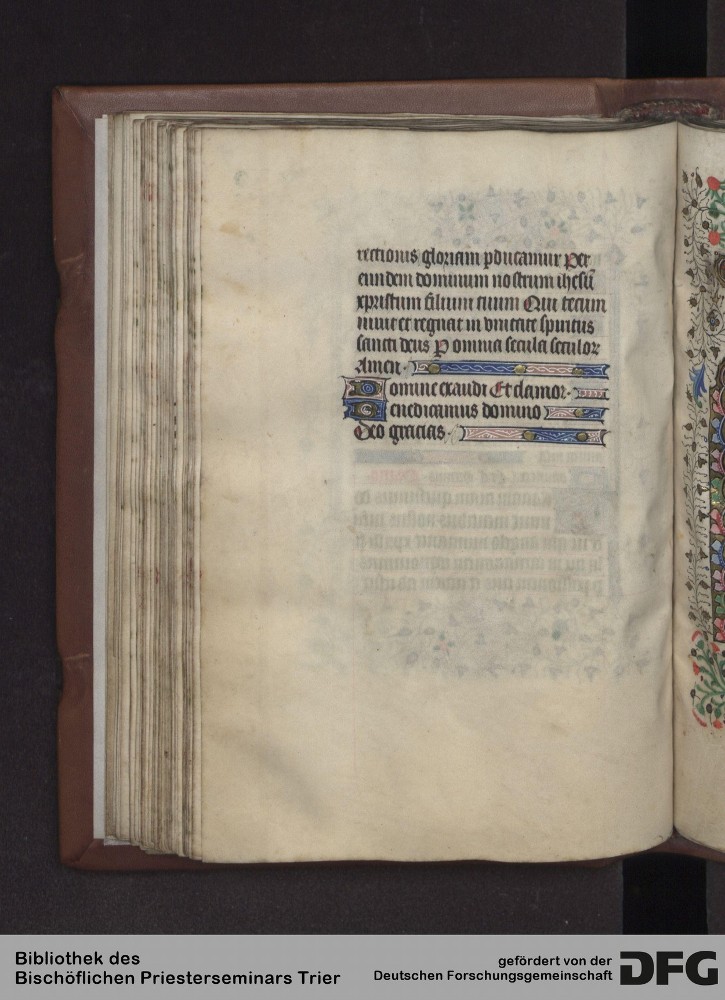 rectionis gloriam ꝑducamur Per
eundem dominum nostrum ihesū
xpristum filium tuum Qui tecum
uiuit et regnat in vnitate spiritus
sancti deus P omnia secula seculoꝝ
Amen·
Domine exaudi Et clamor·
Benedicamus domino
Deo gracias·
Bibliothek des
Bischöflichen Priesterseminars Trier
gefördert von der
Deutschen Forschungsgemeinschaft
DFG